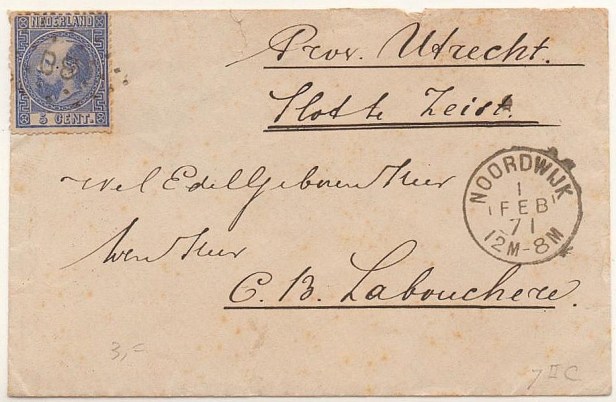 NEDERLAND
5 CENT.
Prov. Utrecht.
Slot te Zeist.
Wel Edel Geboren Heer
den Heer
C. B. Labouchere.
NOORDWIJK
1
FEB
71
12M-8M
3,-
7 II C